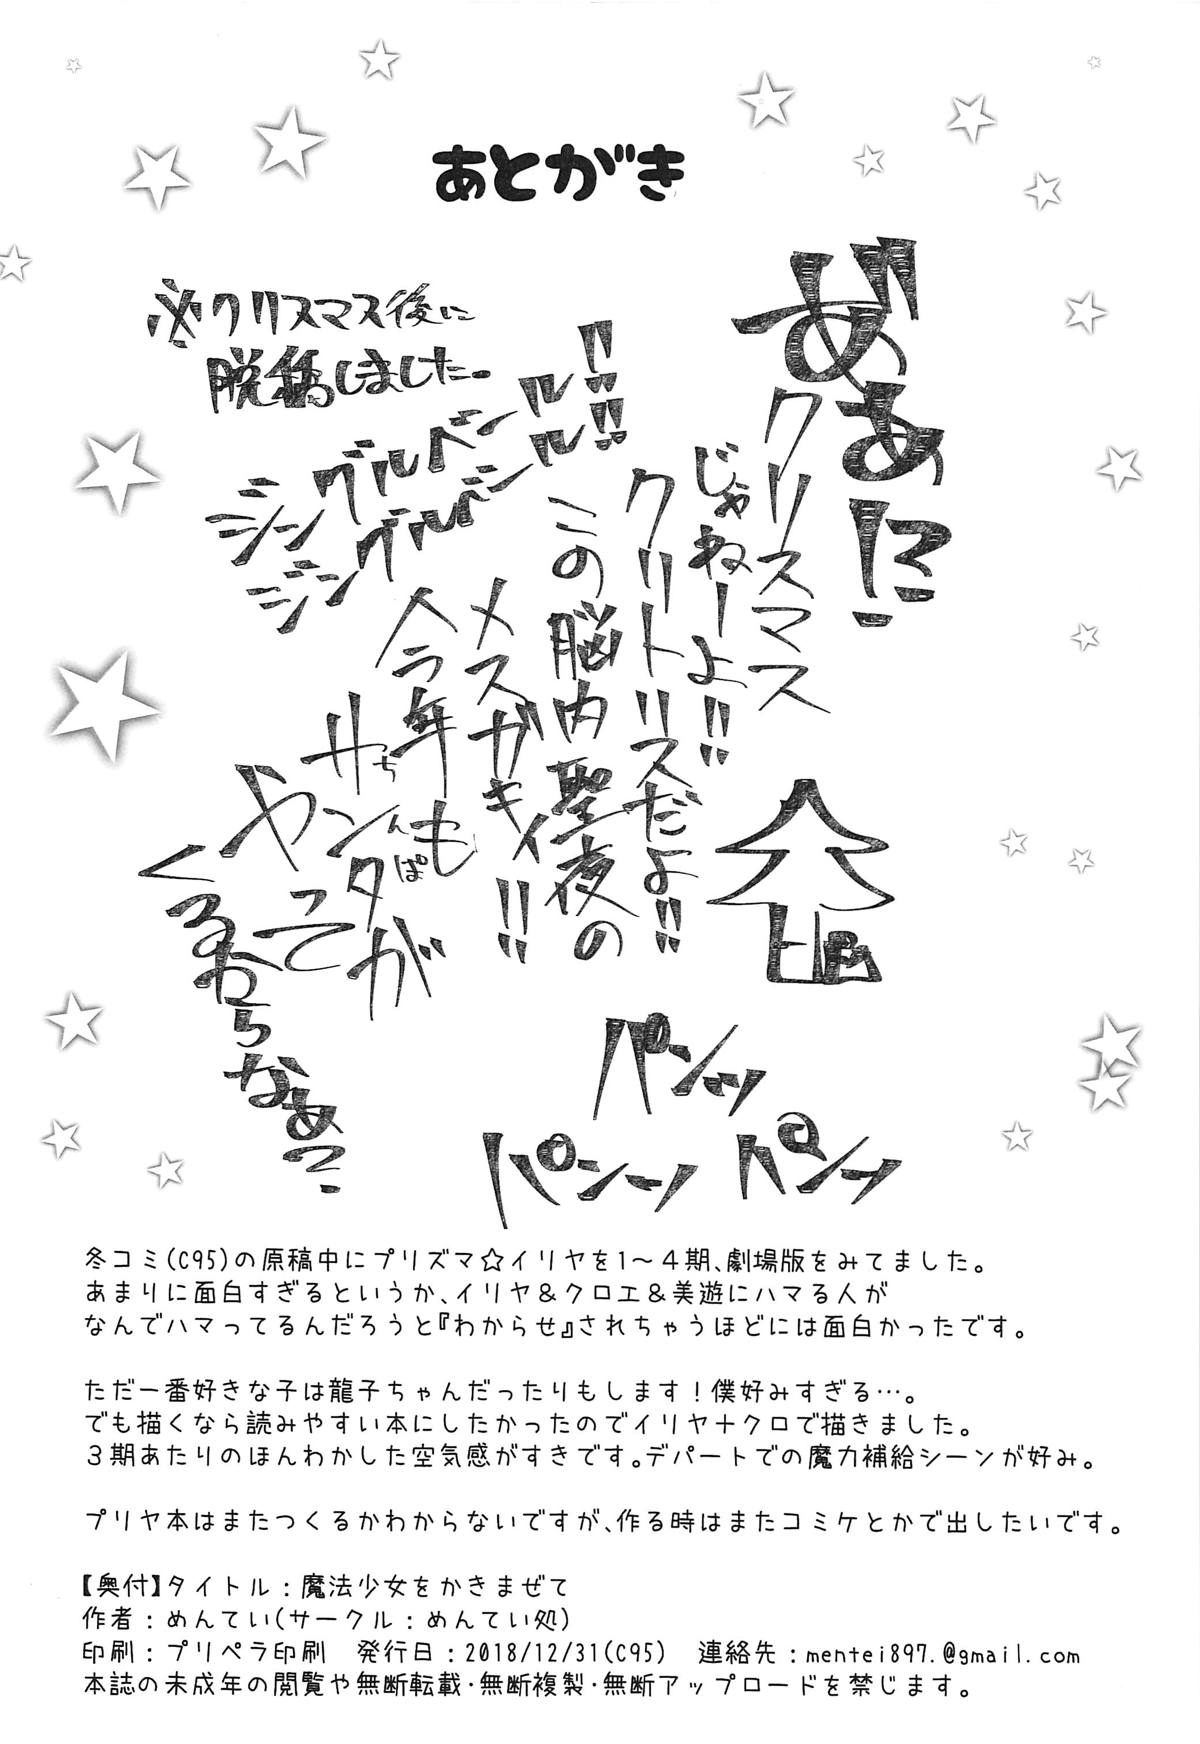 あとがき
ざぁあに
クリスマス
じゃねーよ!!
クリトリスだよ!!
この脳内聖夜の
メスガキィ!!
今年も
サちんぽ
ンタが
やって
くるわらなぁこ
※クリスマス後に
脱稿しました。
ジングルベール!!
ジングルベール!!
パンッ
パンッ
パンッ
冬コミ(C95)の原稿中にプリズマ☆イリヤを1～4期、劇場版をみてました。
あまりに面白すぎるというか、イリヤ&クロエ&美遊にハマる人が
なんでハマってるんだろうと『わからせ』されちゃうほどには面白かったです。
ただ一番好きな子は龍子ちゃんだったりもします！僕好みすぎる…。
でも描くなら読みやすい本にしたかったのでイリヤ+クロで描きました。
3期あたりのほんわかした空気感がすきです。デパートでの魔力補給シーンが好み。
プリヤ本はまたつくるかわからないですが、作る時はまたコミケとかで出したいです。
【奥付】タイトル：魔法少女をかきまぜて
作者：めんてい(サークル：めんてい処)
印刷：プリペラ印刷　発行日：2018/12/31(C95)　連絡先：mentei897.@gmail.com
本誌の未成年の閲覧や無断転載・無断複製・無断アップロードを禁じます。